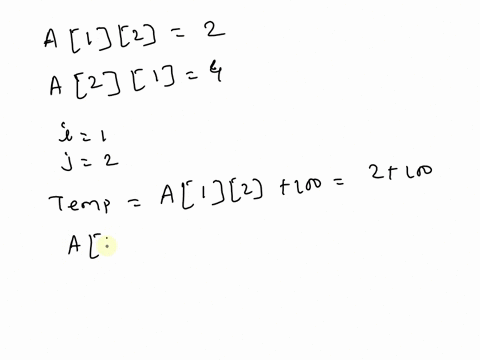 A[1][2] = 2
A[2][1] = 4
i = 1
j = 2
Temp = A[1][2] + 100 = 2 + 100
A[i